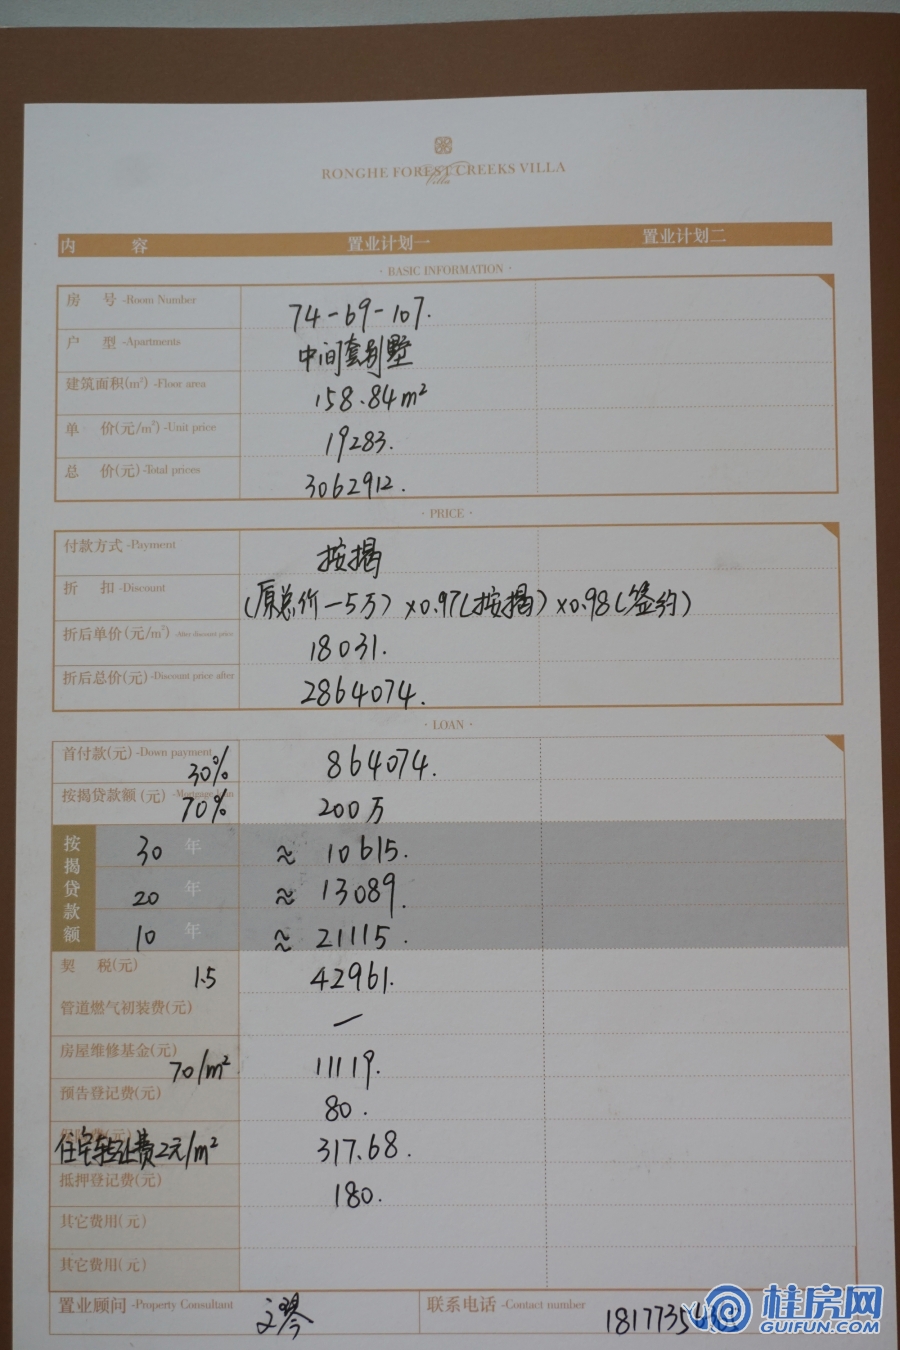 RONGHE FOREST CREEKS VILLA
Villa
内 容 置业计划一 置业计划二
· BASIC INFORMATION ·
房 号 -Room Number 74-69-107.
户 型 -Apartments 中间套别墅
建筑面积(m²) -Floor area 158.84m²
单 价(元/m²) -Unit price 19283.
总 价(元) -Total prices 3062912.
· PRICE ·
付款方式 -Payment 按揭
折 扣 -Discount (原总价-5万)×0.97(按揭)×0.98(签约)
折后单价(元/m²) -After discount price 18031.
折后总价(元) -Discount price after 2864074.
· LOAN ·
首付款(元) -Down payment 30% 864074.
按揭贷款额(元) 70% 200万
按揭贷款额
30 年 ≈ 10615.
20 年 ≈ 13089.
10 年 ≈ 21115.
契 税(元) 1.5 42961.
管道燃气初装费(元) —
房屋维修基金(元) 70/m² 11119.
预告登记费(元) 80.
住宅转让费2元/m² 317.68.
抵押登记费(元) 180.
其它费用(元)
其它费用(元)
置业顾问 -Property Consultant 联系电话 -Contact number
桂房网
GUIFUN.COM